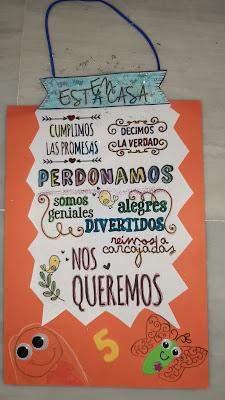 EN
ESTA CASA
CUMPLIMOS
LAS PROMESAS
DECIMOS
LA VERDAD
PERDONAMOS
somos
geniales
alegres
DIVERTIDOS
reímos a
carcajadas
NOS
QUEREMOS
5